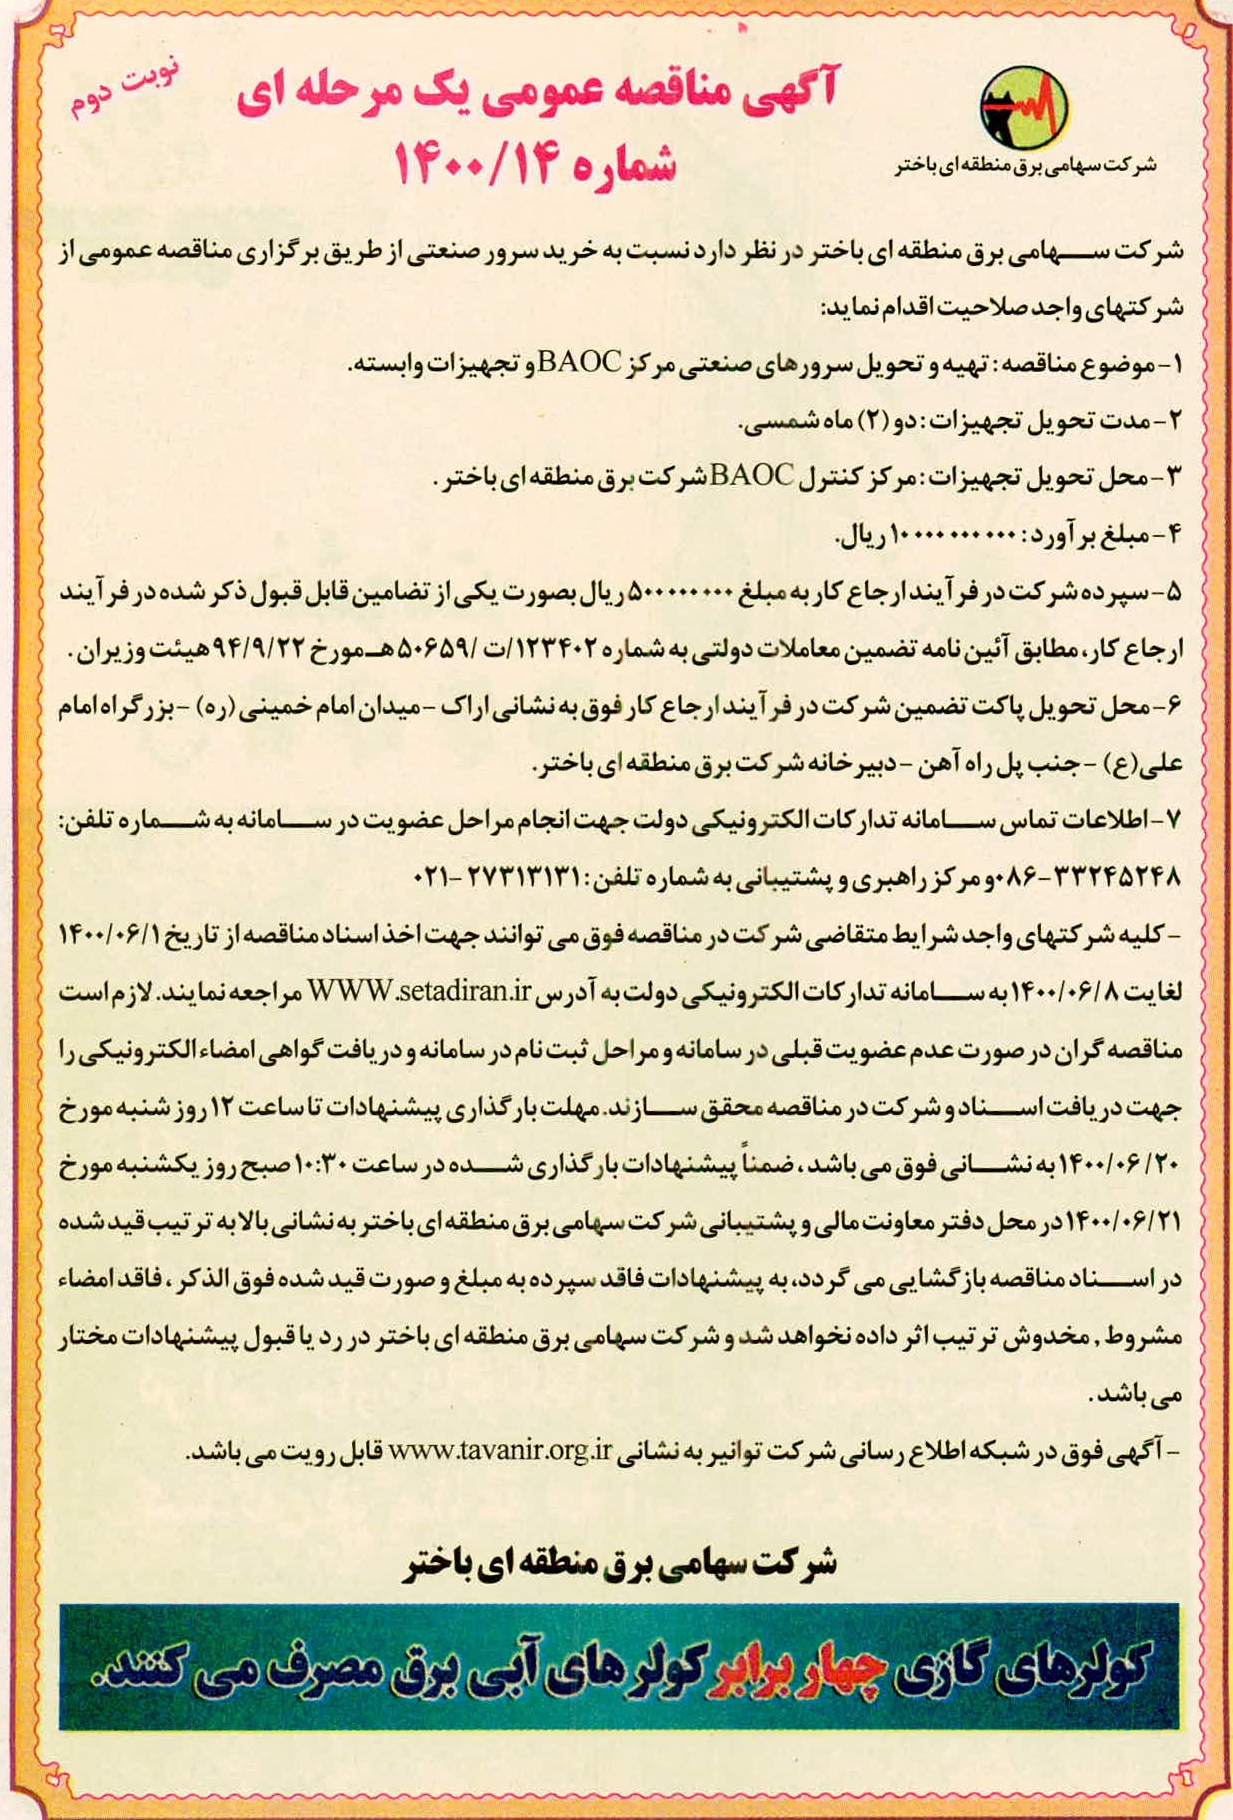 نوبت دوم
آگهی مناقصه عمومی یک مرحله ای
شماره ۱۴۰۰/۱۴
شرکت سهامی برق منطقه ای باختر
شرکت سهامی برق منطقه ای باختر در نظر دارد نسبت به خرید سرور صنعتی از طریق برگزاری مناقصه عمومی از
شرکتهای واجد صلاحیت اقدام نماید:
۱-موضوع مناقصه : تهیه و تحویل سرورهای صنعتی مرکز BAOC و تجهیزات وابسته.
۲-مدت تحویل تجهیزات : دو (۲) ماه شمسی.
۳-محل تحویل تجهیزات : مرکز کنترل BAOC شرکت برق منطقه ای باختر .
۴-مبلغ برآورد : ۱۰۰۰۰۰۰۰۰۰۰ ریال.
۵-سپرده شرکت در فرآیند ارجاع کار به مبلغ ۵۰۰۰۰۰۰۰۰ ریال بصورت یکی از تضامین قابل قبول ذکر شده در فرآیند
ارجاع کار، مطابق آئین نامه تضمین معاملات دولتی به شماره ۱۲۳۴۰۲/ت /۵۰۶۵۹هـ مورخ ۹۴/۹/۲۲ هیئت وزیران .
۶-محل تحویل پاکت تضمین شرکت در فرآیند ارجاع کار فوق به نشانی اراک -میدان امام خمینی (ره) -بزرگراه امام
علی(ع) -جنب پل راه آهن -دبیرخانه شرکت برق منطقه ای باختر.
۷-اطلاعات تماس سامانه تدارکات الکترونیکی دولت جهت انجام مراحل عضویت در سامانه به شماره تلفن:
۰۸۶-۳۳۲۴۵۲۴۸ و مرکز راهبری و پشتیبانی به شماره تلفن : ۲۷۳۱۳۱۳۱ -۰۲۱
- کلیه شرکتهای واجد شرایط متقاضی شرکت در مناقصه فوق می توانند جهت اخذ اسناد مناقصه از تاریخ ۱۴۰۰/۰۶/۱
لغایت ۱۴۰۰/۰۶/۸ به سامانه تدارکات الکترونیکی دولت به آدرس WWW.setadiran.ir مراجعه نمایند. لازم است
مناقصه گران در صورت عدم عضویت قبلی در سامانه و مراحل ثبت نام در سامانه و دریافت گواهی امضاء الکترونیکی را
جهت دریافت اسناد و شرکت در مناقصه محقق سازند. مهلت بارگذاری پیشنهادات تا ساعت ۱۲ روز شنبه مورخ
۱۴۰۰/۰۶/۲۰ به نشانی فوق می باشد ، ضمناً پیشنهادات بارگذاری شده در ساعت ۱۰:۳۰ صبح روز یکشنبه مورخ
۱۴۰۰/۰۶/۲۱ در محل دفتر معاونت مالی و پشتیبانی شرکت سهامی برق منطقه ای باختر به نشانی بالا به ترتیب قید شده
در اسناد مناقصه بازگشایی می گردد، به پیشنهادات فاقد سپرده به مبلغ و صورت قید شده فوق الذکر ، فاقد امضاء
مشروط , مخدوش ترتیب اثر داده نخواهد شد و شرکت سهامی برق منطقه ای باختر در رد یا قبول پیشنهادات مختار
می باشد .
- آگهی فوق در شبکه اطلاع رسانی شرکت توانیر به نشانی www.tavanir.org.ir قابل رویت می باشد.
شرکت سهامی برق منطقه ای باختر
کولرهای گازی چهار برابر کولر های آبی برق مصرف می کنند.